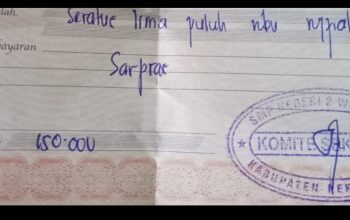 lah.
Seratue lima puluh ribu rupiah
bayaran
Sarpras
150.000
SMP NEGERI 2 W
KOMITE SEK
KABUPATEN